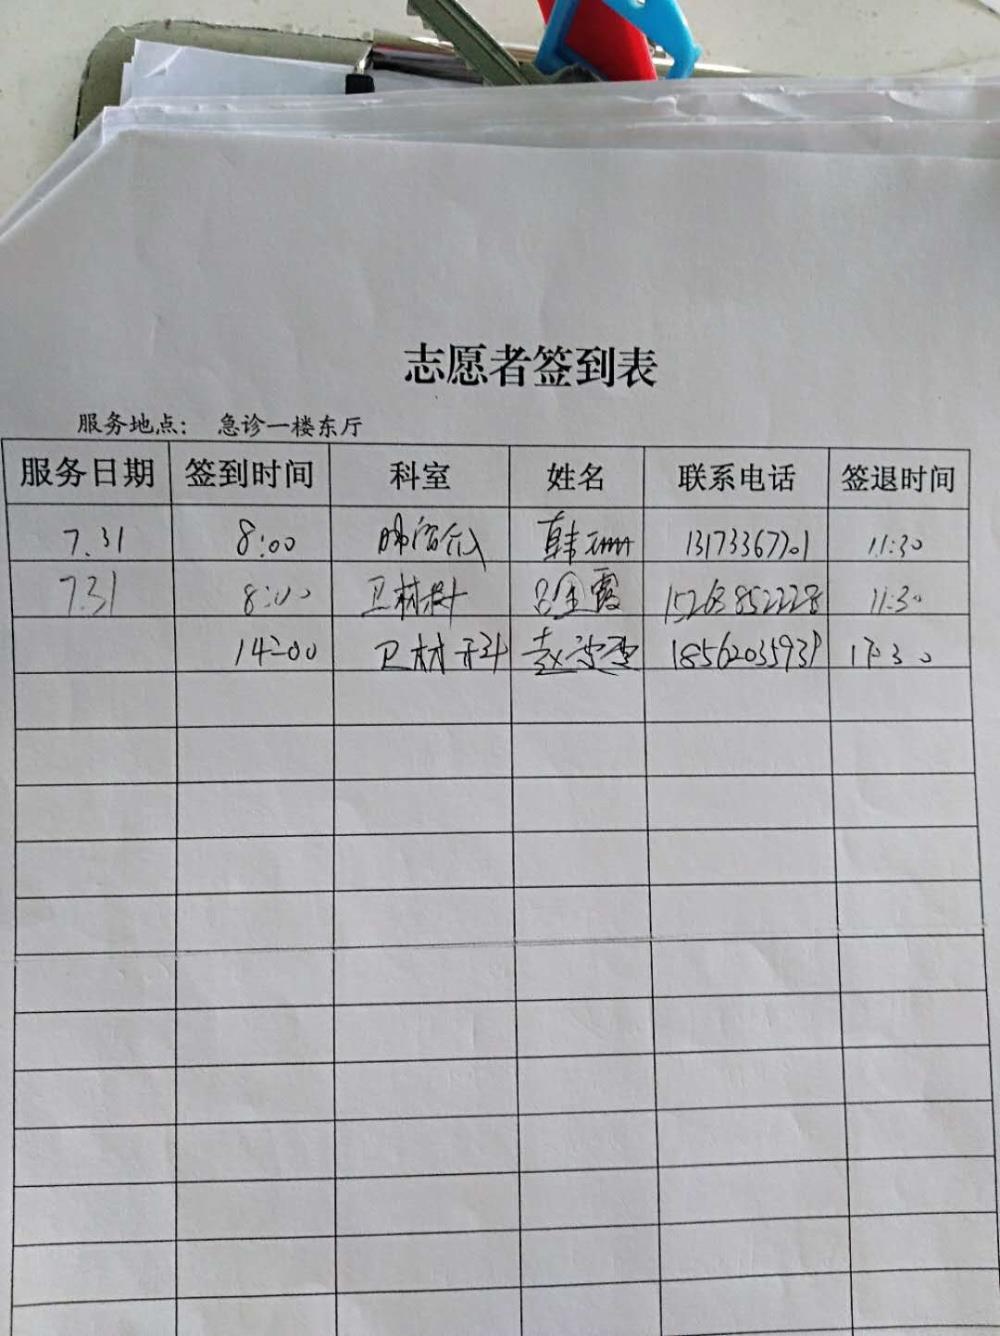 志愿者签到表
服务地点： 急诊一楼东厅
服务日期 签到时间 科室 姓名 联系电话 签退时间
7.31 8:00 韩 13173367701 11:30
7.31 8:00 卫材科 吕金霞 15268852228 11:30
14:00 卫材科 赵 18562035939 17:30